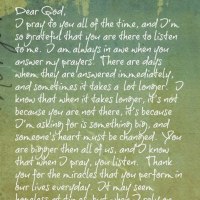 Dear God,
I pray to you all of the time, and I'm
so grateful that you are there to listen
to me. I am always in awe when you
answer my prayers! There are days
when they are answered immediately,
and sometimes it takes a lot longer. I
know that when it takes longer, it's not
because you are not there, it's because
I'm asking for is something big, and
someone's heart must be changed. You
are bigger then all of us, and I know
that when I pray, your listen. Thank
you for the miracles that you perform in
our lives everyday. It may seem